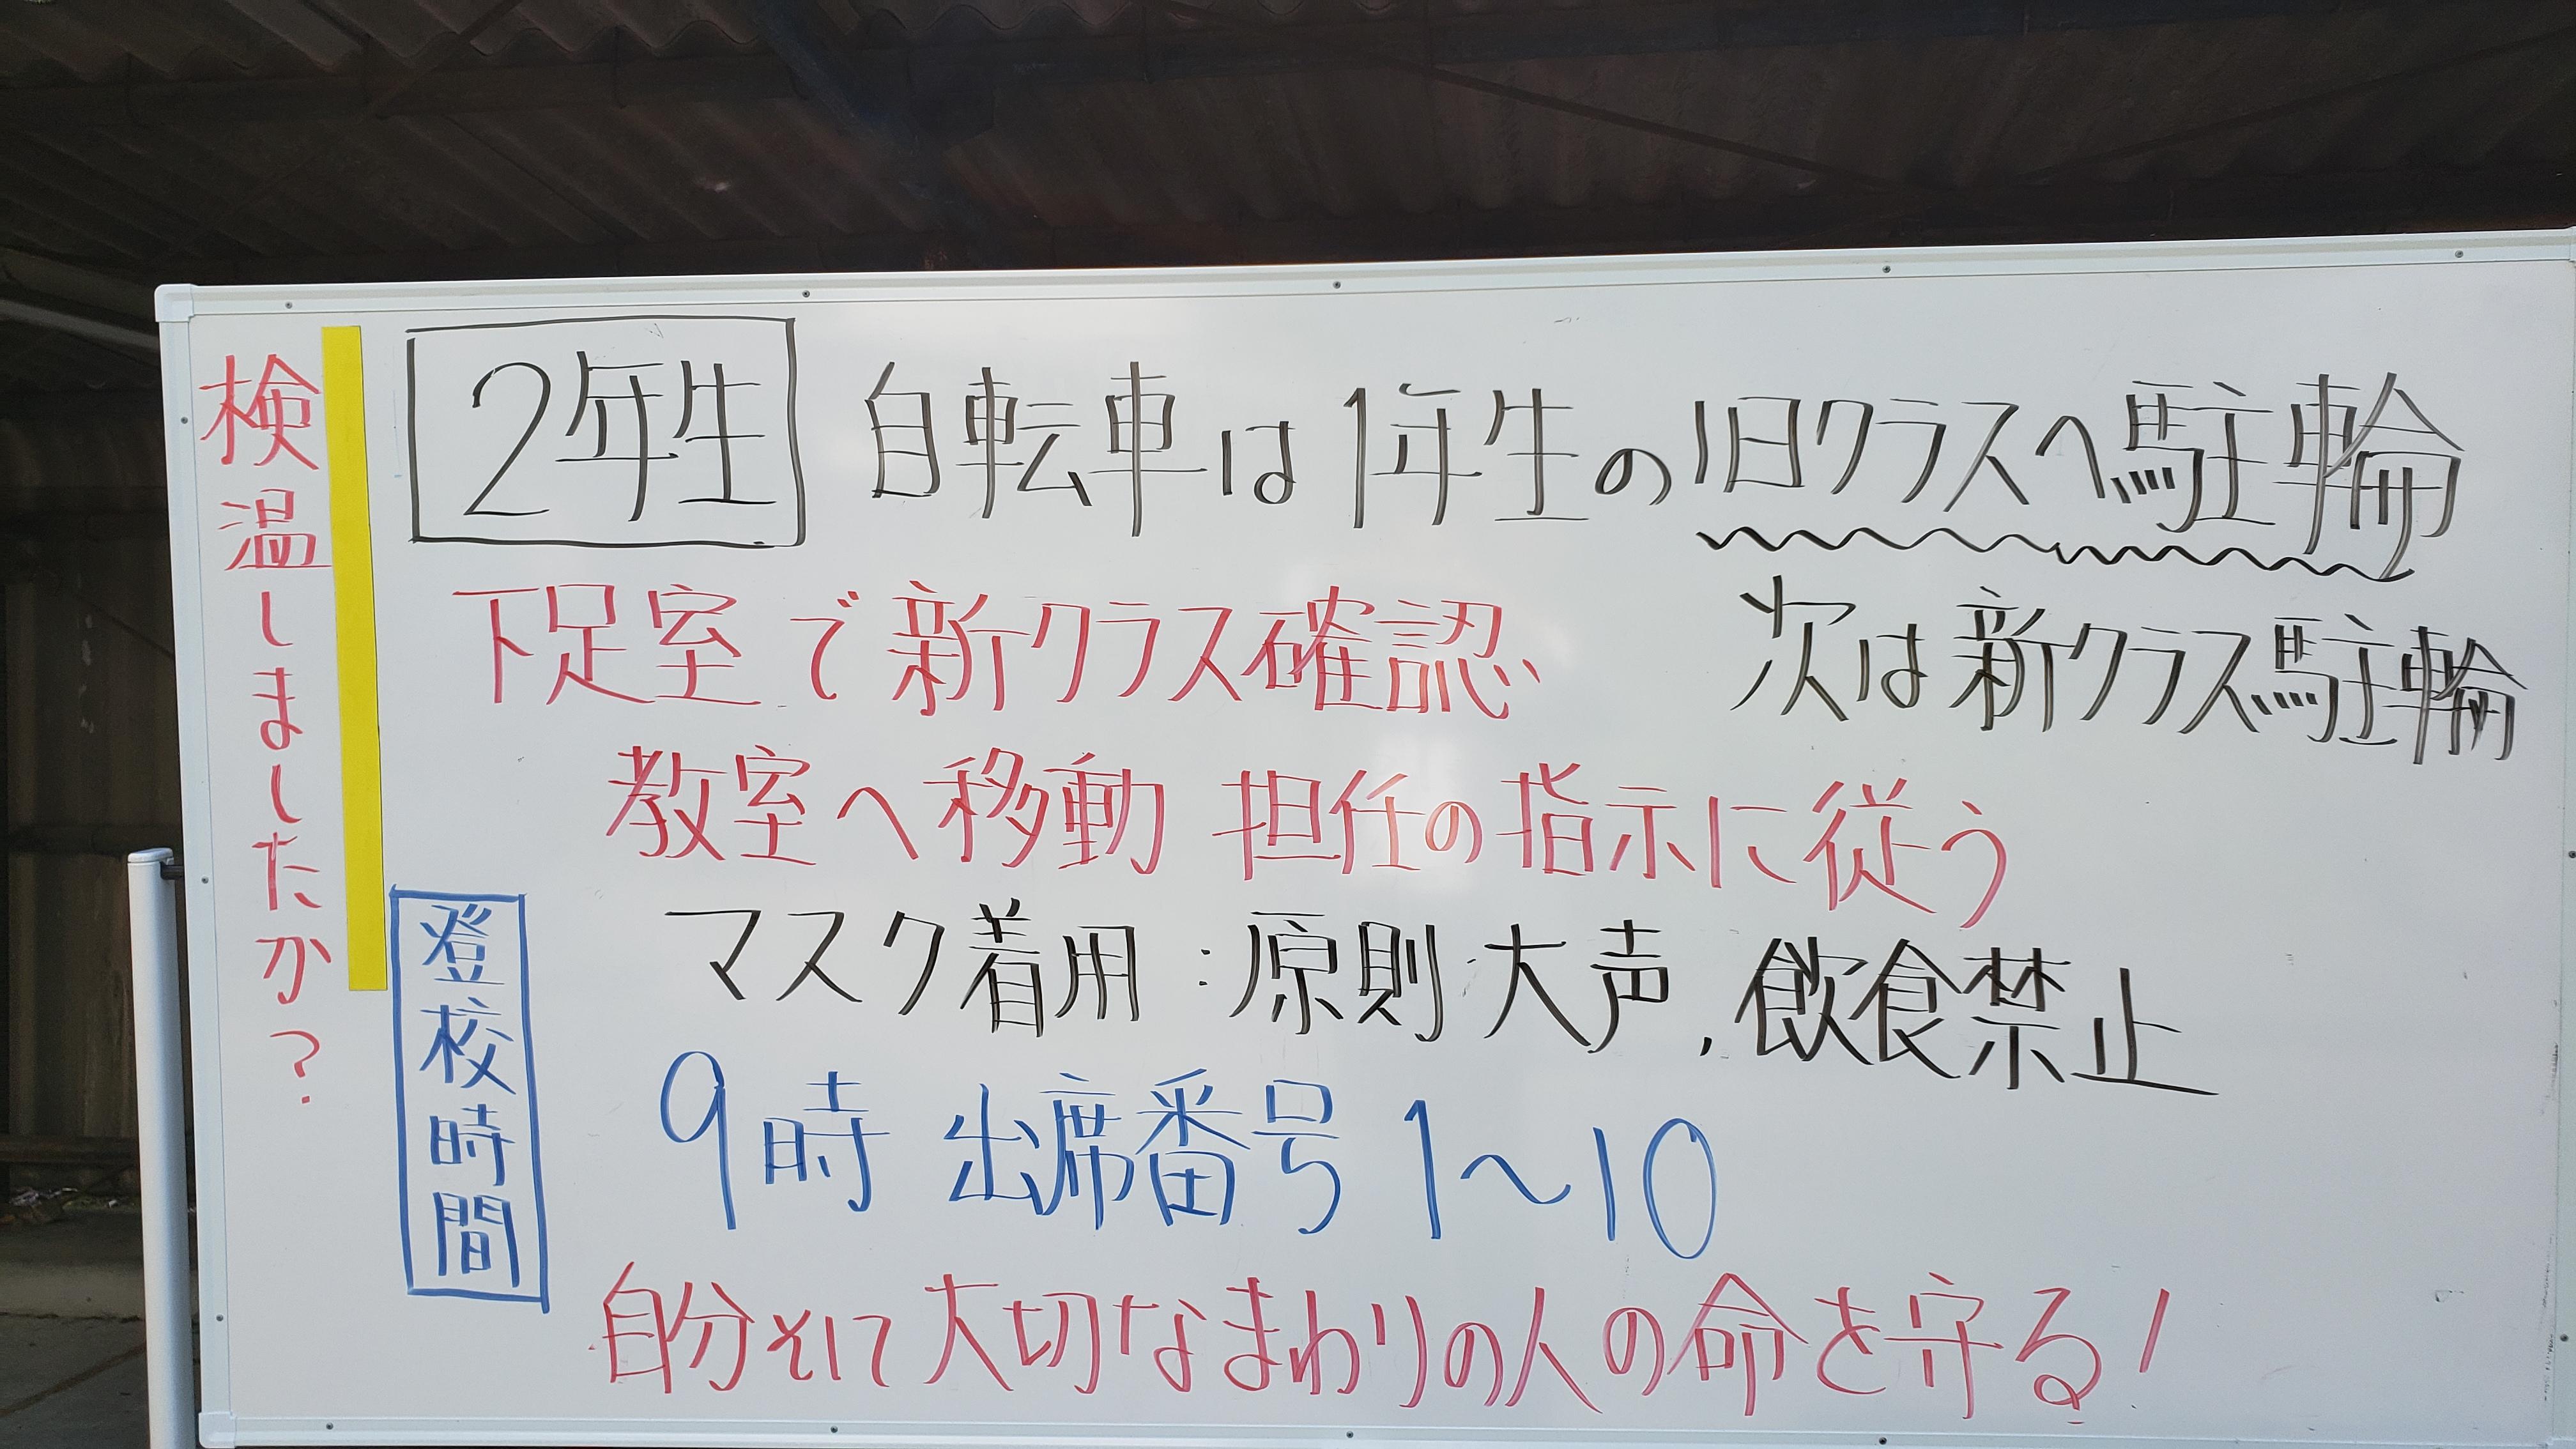 検温しましたか?
2年生 自転車は1年生の旧クラスへ駐輪
下足室で新クラス確認、 次は新クラス駐輪
教室へ移動 担任の指示に従う
マスク着用:原則 大声,飲食禁止
登校時間
9時 出席番号1～10
自分そして大切なまわりの人の命を守る!